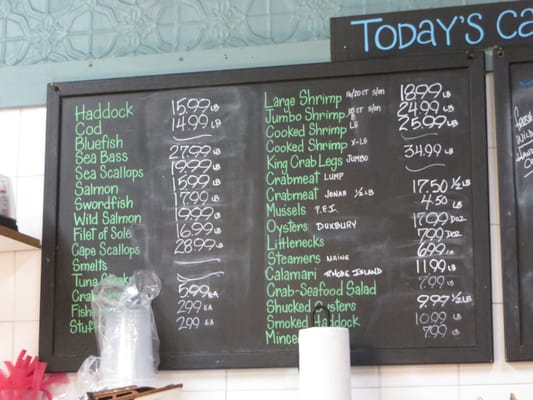 TODAY'S CA
Haddock 15.99 LB
Cod 14.99 LB
Bluefish
Sea Bass 27.99 LB
Sea Scallops 19.99 LB
Salmon 15.99 LB
Swordfish 17.99 LB
Wild Salmon 19.99 LB
Filet of Sole 16.99 LB
Cape Scallops 28.99 LB
Smelts
Tuna Steaks
Crab 5.99 EA
Fish 2.99 EA
Stuff 2.99 EA
Large Shrimp 16/20 CT 18.99 LB
Jumbo Shrimp 24.99 LB
Cooked Shrimp LG 25.99 LB
Cooked Shrimp X-LG
King Crab Legs JUMBO 34.99 LB
Crabmeat LUMP
Crabmeat JONAH 1/2 LB 17.50 1/2 LB
Mussels P.E.I. 4.50 LB
Oysters DUXBURY 17.99 DOZ
Littlenecks 7.99 DOZ
Steamers MAINE 6.99 LB
Calamari RHODE ISLAND 11.99 LB
Crab-Seafood Salad 7.99 LB
Shucked Oysters 9.99 1/2 LB
Smoked Haddock 10.99 LB
Mince 7.99 LB